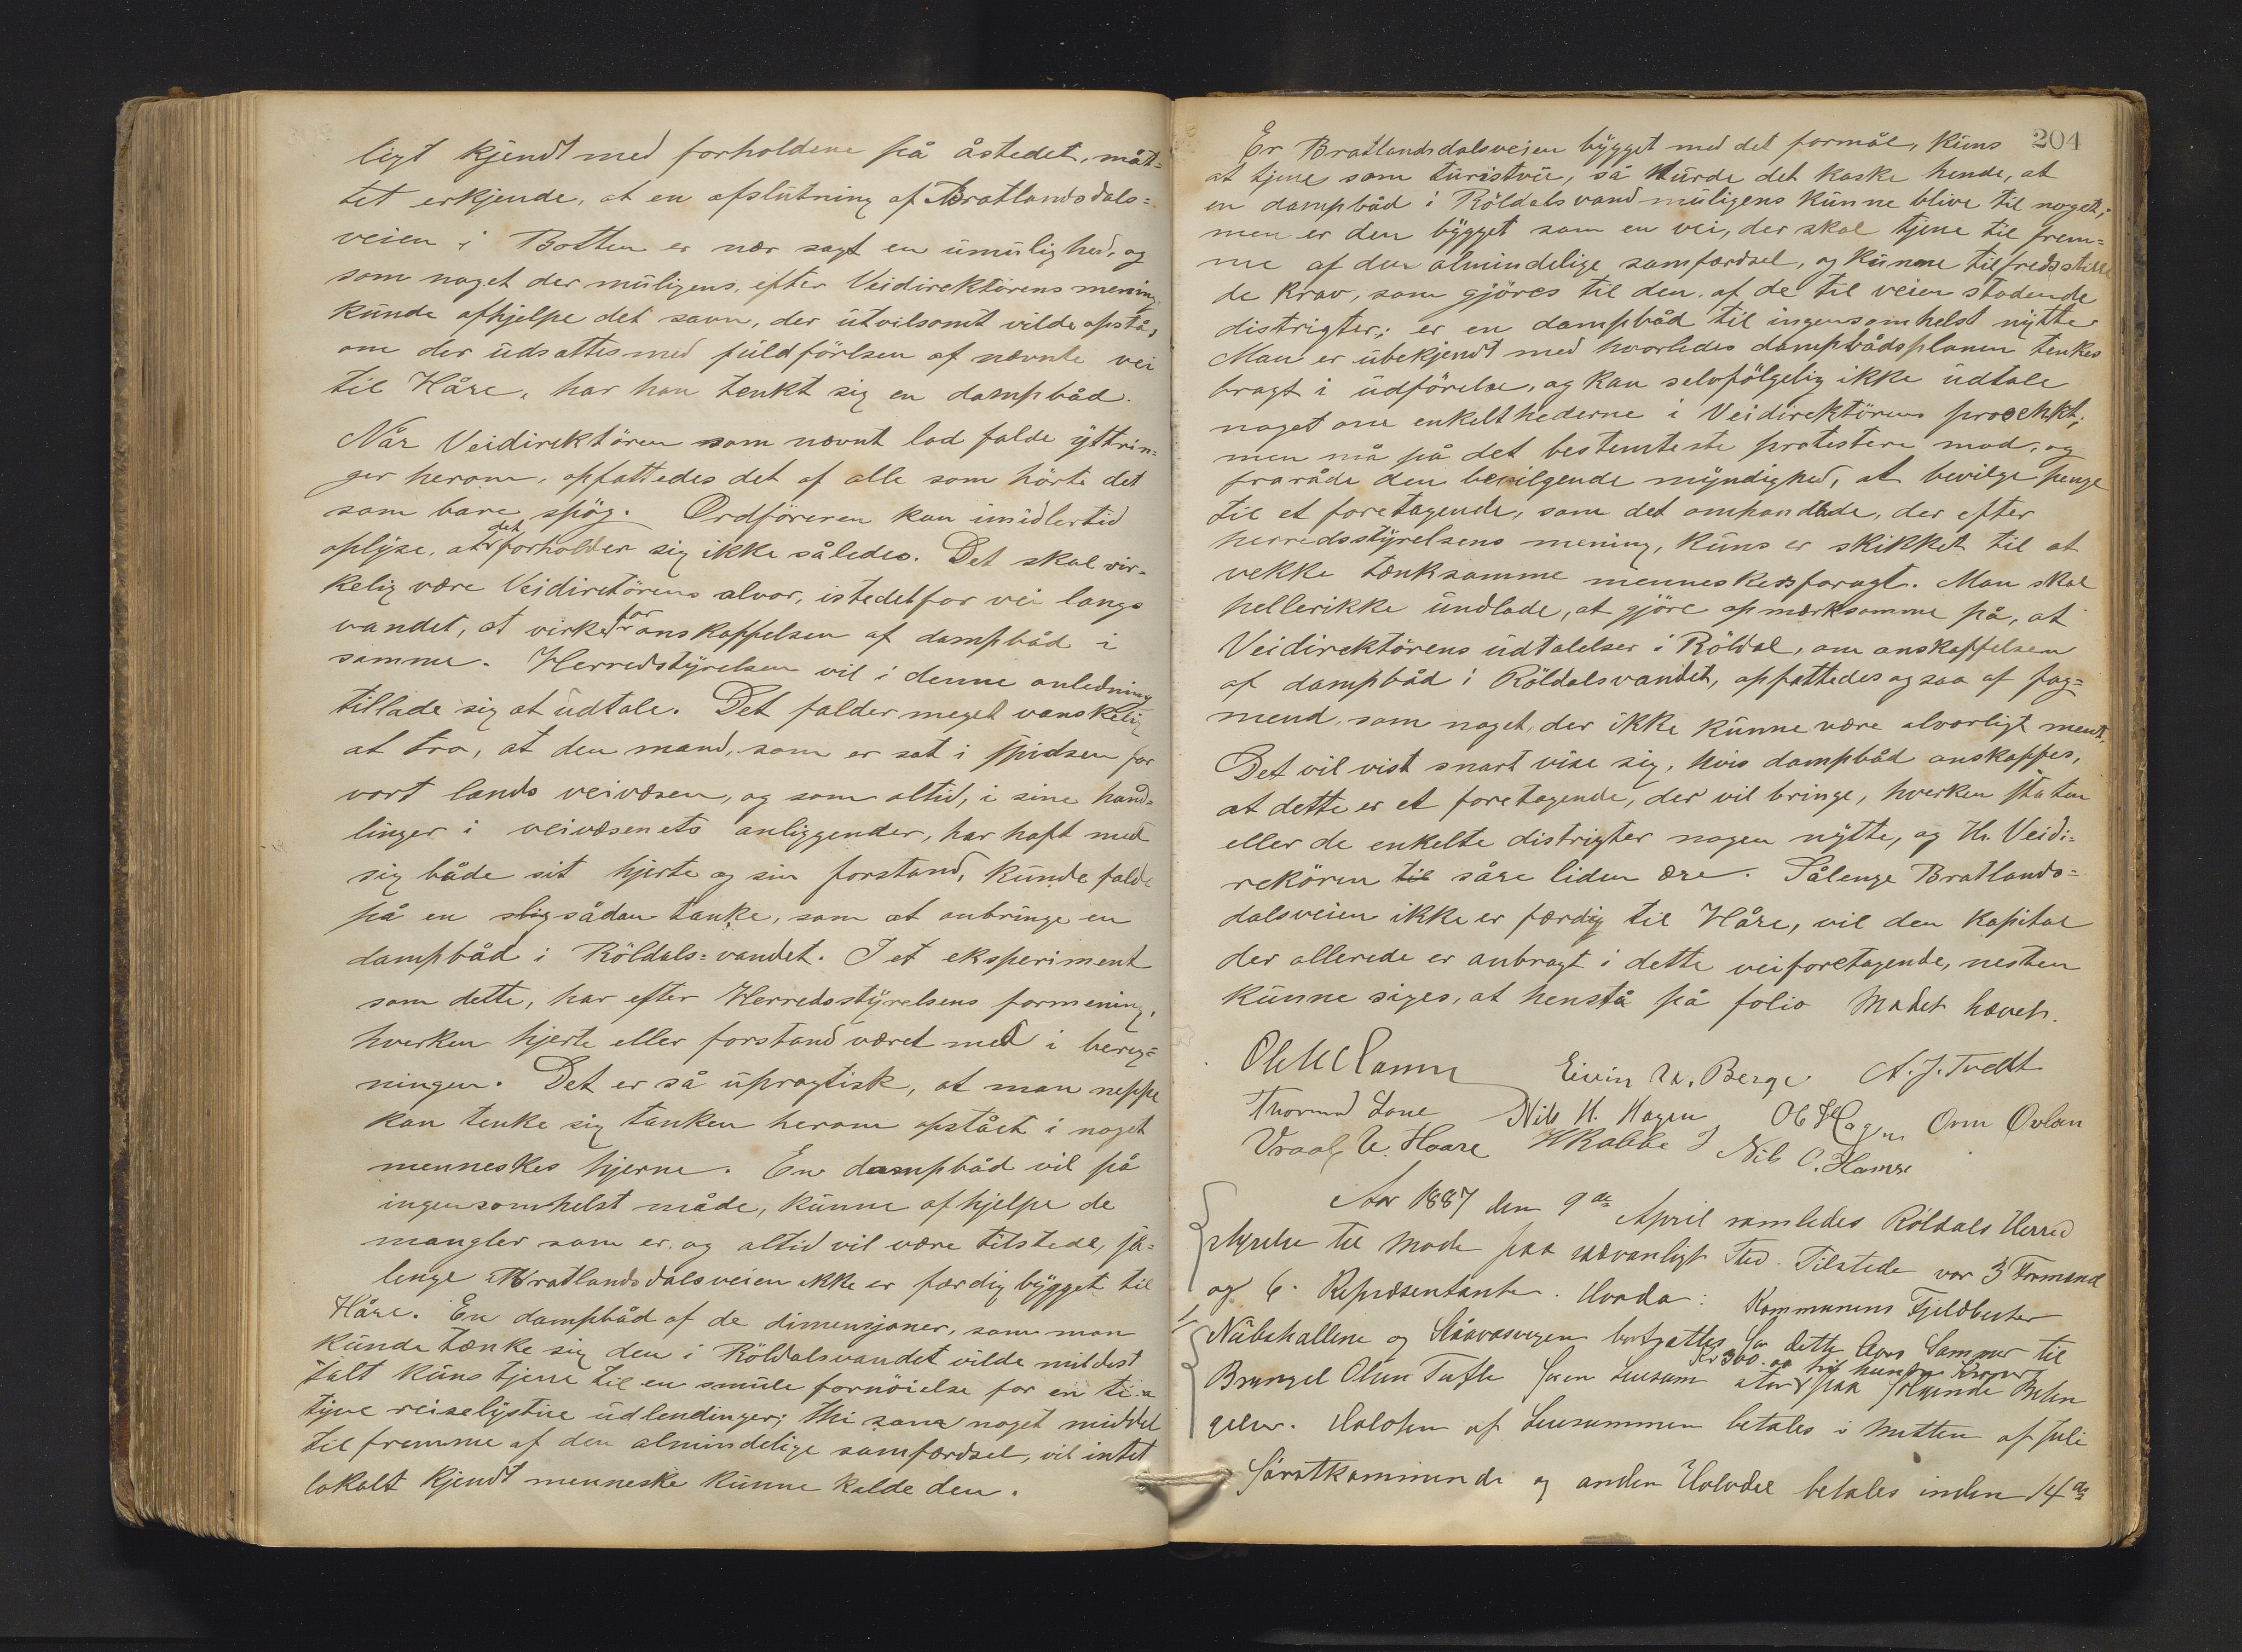 ligt kjendt med forholdene på åstedet, måt=
tet erkjende, at en afslutning af Bratlandsdals=
veien i Botten er nær sagt en umulighed, og
som noget der muligens, efter Veidirektörens mening,
kunde afhjelpe det savn, der utvilsomt vilde opstå,
om der udsattes med fuldförlsen af nævnte vei
til Håre, har han tenkt sig en dampbåd.
Når Veidirektören som nævnt lod falde yttrin=
ger herom, opfattedes det af alle som hörte det
som bare spög. Ordföreren kan imidlertid
oplyse, at det forholder sig ikke således. Det skal vir-
kelig være Veidiretörens alvor, istedetfor vei langs
vandet, at virke for anskaffelsen af dampbåd i
samme. Herredstyrelsen vil i denne anledning
tillade sig at udtale. Det falder meget vanskelig
at tro, at den mand, som er sat i spidsen for
vort lands veivæsen, og som altid, i sine hand=
linger i veivæsenets anliggender, har haft med
sig både sit hjerte og sin forstand, kunde falde
på en slig sådan tanke, som at anbringe en
dampbåd i Röldals=vandet. I et eksperiment
som dette, har efter Herredsstyrelsens formening,
hverken hjerte eller forstand været med i bereg=
ningen. Det er så upragtisk, at man neppe
kan tenke sig tanken herom opstået i noget
menneskes hjerne. En dampbåd vil på
ingensomhelst måde, kunne afhjelpe de
mangler som er og altid vil være tilstede, så=
lenge Bratlandsdalsveien ikke er færdig bygget til
Håre. En dampbåd af de dimensjoner, som man
kunde tænke sig den i Röldalsvandet vilde mildest
talt kuns tjene til en smule fornöielse for en ti a
tyve reiselystne udlendinger; thi som noget middel
til fremme af den almindelige samfærdsel, vil intet
lokalt kjendt menneske kunne kalde den.
204
Er Bratlandsdalsveien bygget med det formål, kuns
at tjene som turistvei, så turde det kaske hende, at
en dampbåd i Röldalsvand muligens kunne blive til noget;
men er den bygget som en vei, der skal tjene til frem=
me af den almindelige samfærdsel, og kunne tilfredsstille
de krav, som gjöres til den af de til veien stödende
distrigter; er en dampbåd til ingensomhelst nytte.
Man er ubekjendt med hvorledes dampbådsplanen tenkes
bragt i udförelse, og kan selvfölgelig ikke udtale
noget om enkelthederne i Veidirektörens prosekkt;
men må på det bestemteste protestere mod, og
fraråde den bevilgende myndighed, at bevilge penge
til et foretagende, som det omhandlede, der efter
herredsstyrelsens mening, kuns er skikket til at
vekke tænksomme menneskers foragt. Man skal
hellerikke undlade, at gjöre opmærksomme på, at
Veidirektörens udtalelser i Röldal, om anskaffelsen
af dampbåd i Röldalsvandet, opfattedes ogsaa af fag=
mend, som noget, der ikke kunne være alvorligt ment.
Det vil vist snart vise sig, hvis dampbåd anskaffes,
at dette er et foretagende, der vil bringe, hverken staten
eller de enkelte distrigter nogen nytte, og Hr. Veidi=
rekören til såre liden ære. Sålenge Bratlands=
dalsveien ikke er færdig til Håre, vil den kapital
der allerede er anbragt i dette veiforetagende, nesten
kunne siges, at henstå på folio Mödet hævet.
Eivin N. Berge A. J. Tvedt
Nils H. Hagen Ob Hagen Orm Øvlan
Vraal V. Haare HRabbe Nils O. Hamre
Aar 1887 den 9de April samledes Röldals Herred
styrelse til Möde paa sædvanligt Sted. Tilstede var 3 Formend
og 6 Repræsentanter. Hvorda: Kommunens Fjeldbeiter
Nübshallene og Staavasvegen bortsattes for dette Aars Sommer til
Kr 300 er tri hundre Kroner
Brungel Olsen Tufte for en Leiesum stor paa fölgende Betin
gelser. Halvten af Leiesummen betales i Midten af Juli
förstkommende og anden Halvdel betales inden 14de